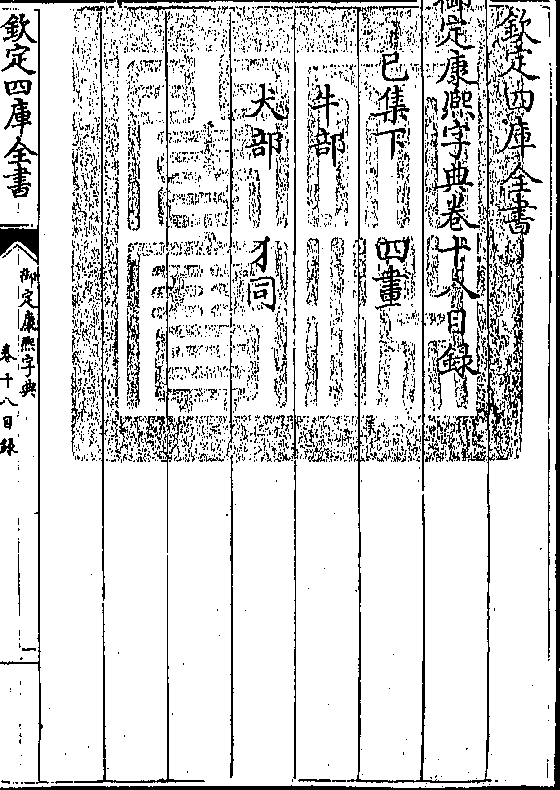 欽定四庫全書
御定康熙字典卷十八目録
巳集下 四畫
牛部
犬部 犭同
欽定四庫全書
御定康熙字典
卷十八目録
一